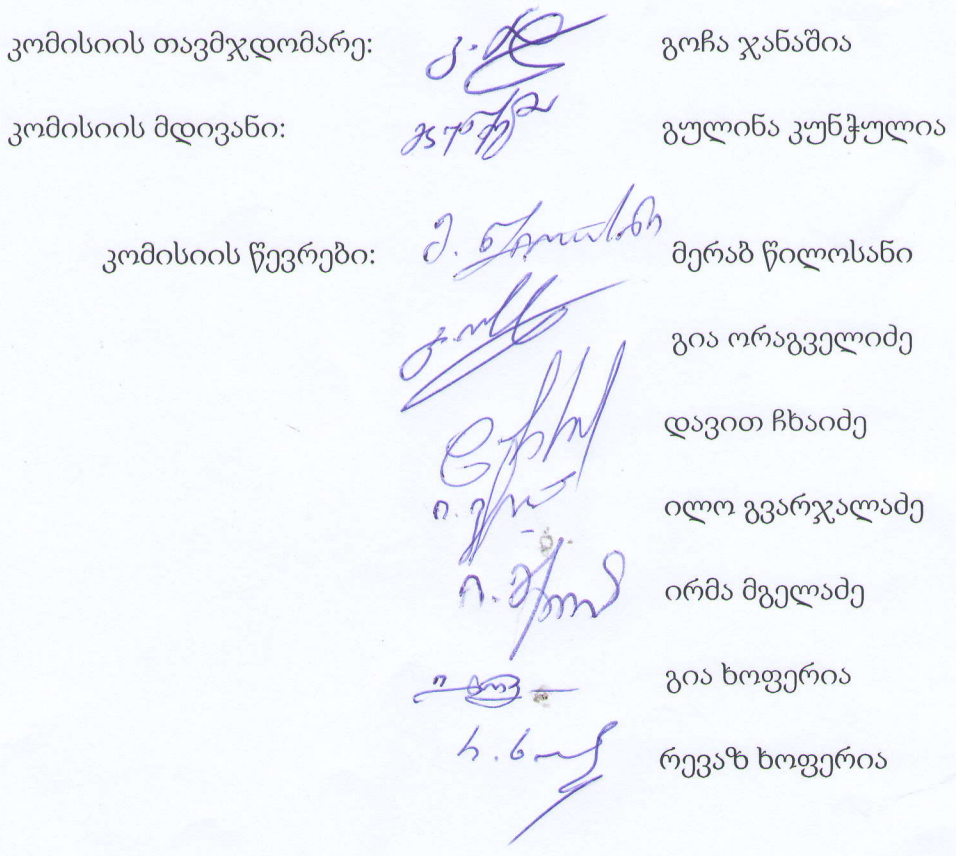 კომისიის თავმჯდომარე: გოჩა ჯანაშია
კომისიის მდივანი: გულინა კუნჭულია
კომისიის წევრები: მ. წილოსანი მერაბ წილოსანი
გია ორაგველიძე
დავით ჩხაიძე
ილო გვარჯალაძე
ირმა მგელაძე
გია ხოფერია
რევაზ ხოფერია